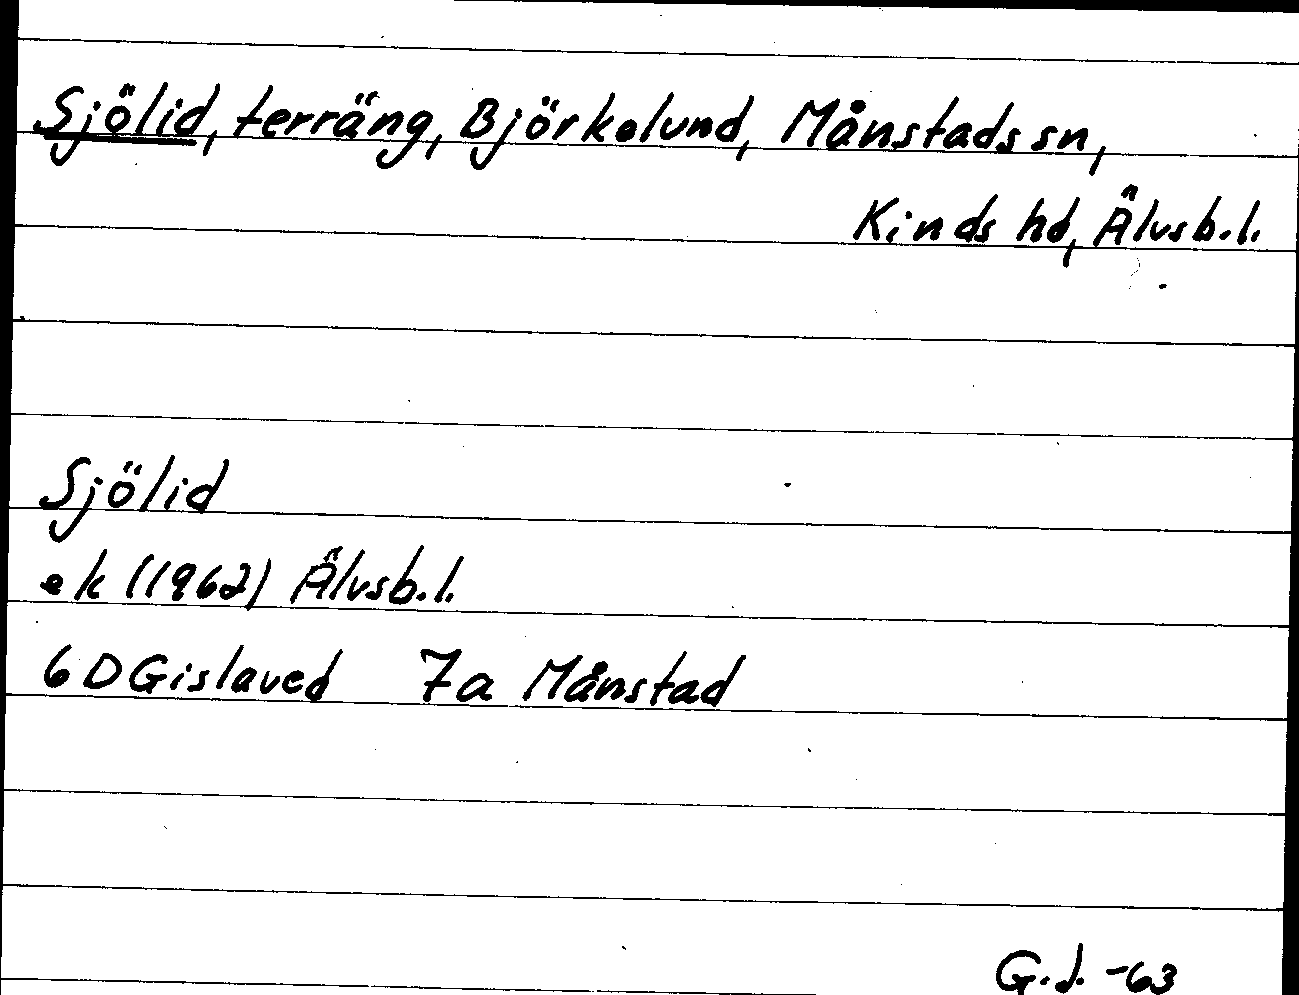 Sjölid, terräng, Björkelund, Månstads sn,
Kinds hd, Älvsb.l.
Sjölid
ek (1962) Älvsb.l.
6D Gislaved 7a Månstad
G.J. -63